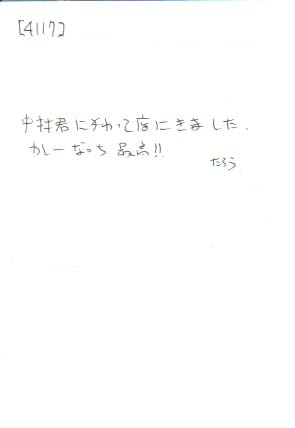 [4117]
中村君にそわって店にきました.
カレーなっち最高!!
だろう